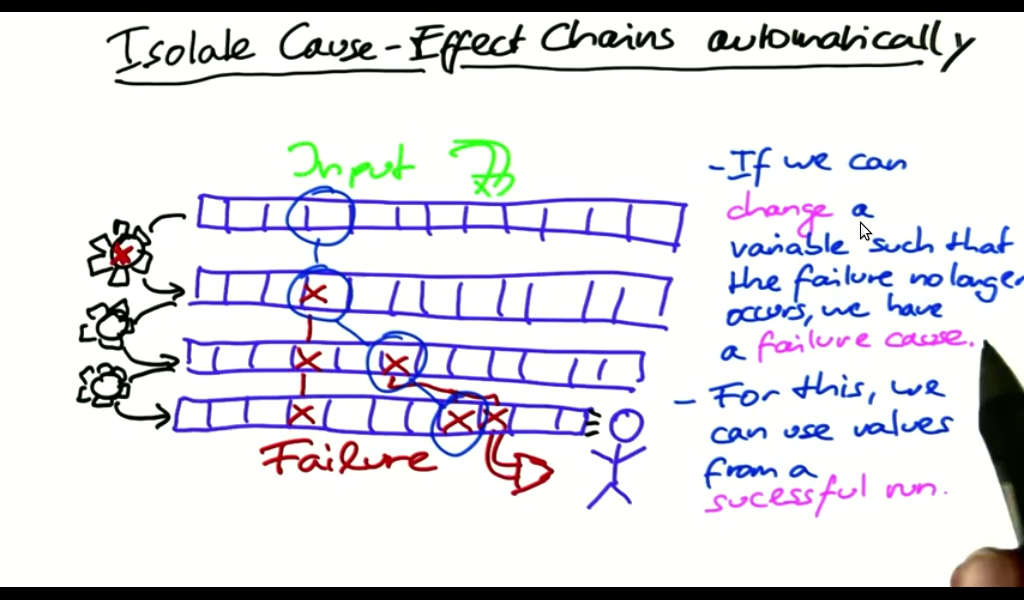 Isolate Cause-Effect Chains automatically
Input
Failure
- If we can
change a
variable such that
the failure no longer
occurs, we have
a failure cause.
- For this, we
can use values
from a
sucessful run.